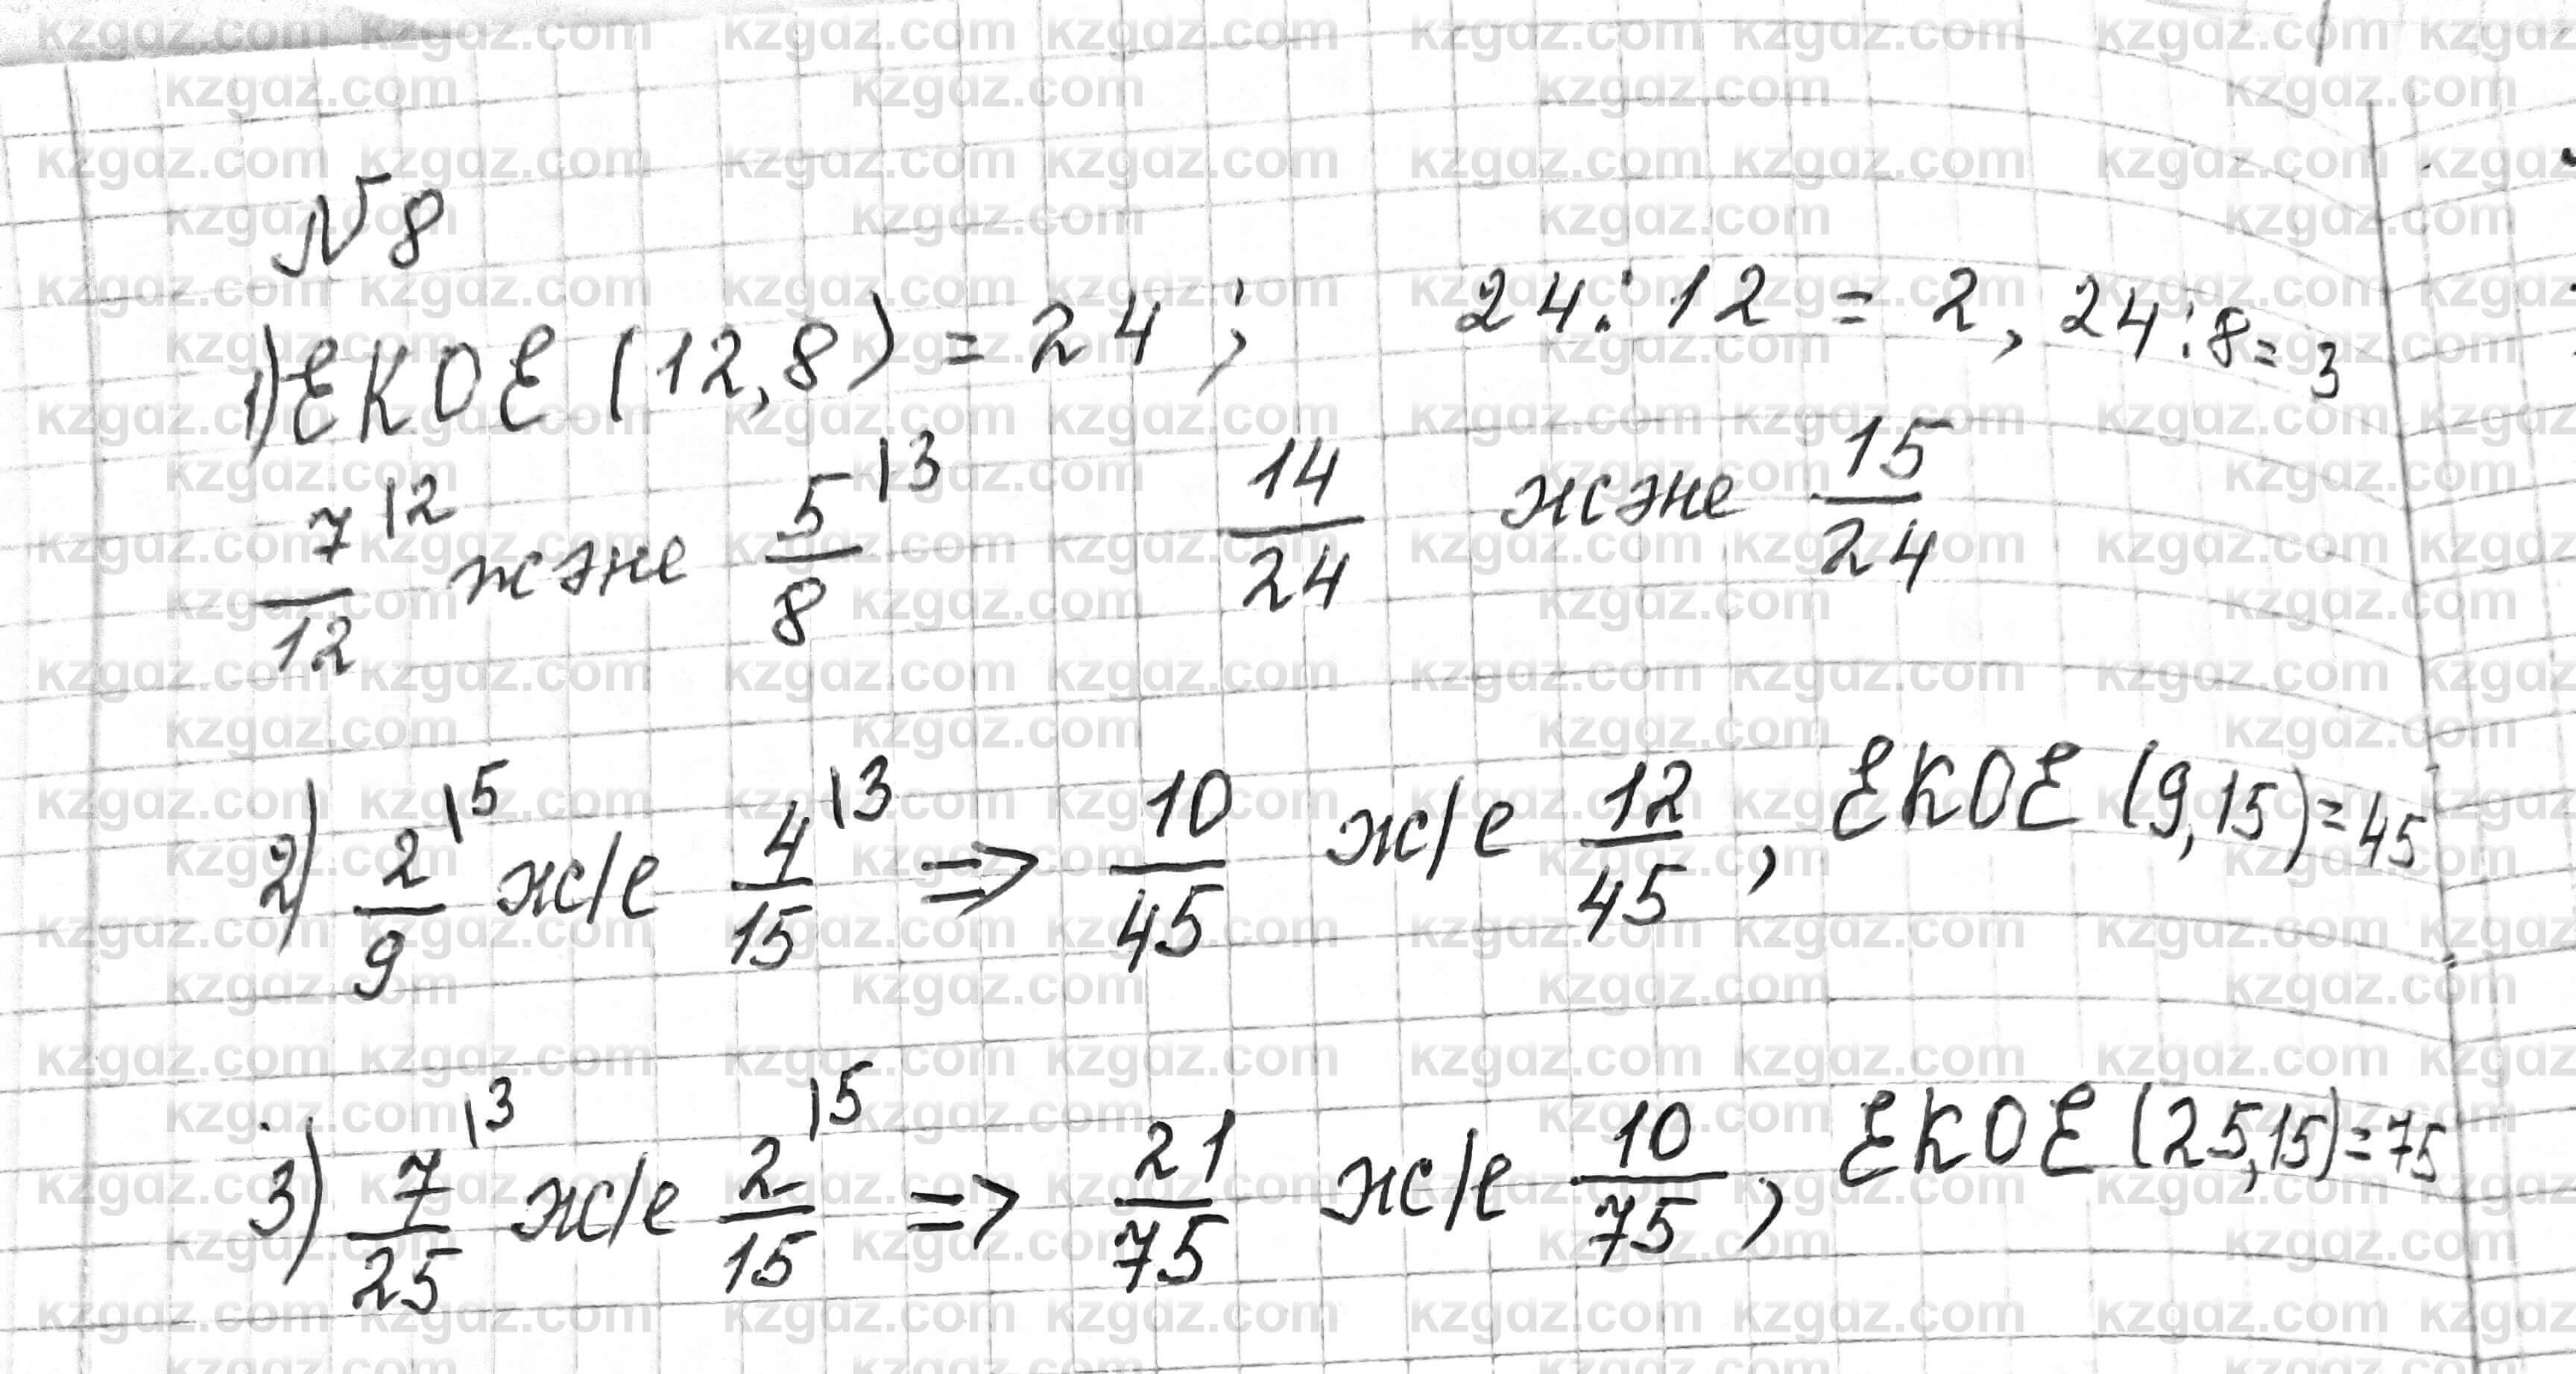 №8
1) ЕКОЕ (12,8) = 24; 24:12 = 2, 24:8=3
7/12 |2 және 5/8 |3 14/24 және 15/24
2) 2/9 |5 ж/е 4/15 |3 => 10/45 ж/е 12/45, ЕКОЕ (9,15)=45
3) 7/25 |3 ж/е 2/15 |5 => 21/75 ж/е 10/75, ЕКОЕ (25,15)=75
kzgdz.com